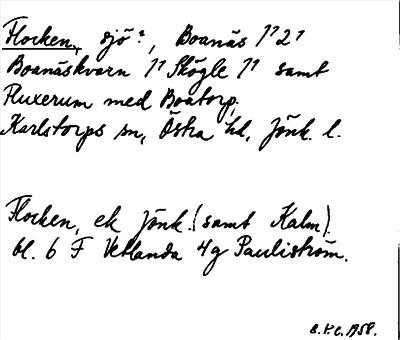 Flocken, sjö?, Boanäs 1⁷ 2⁷
Boanäskvarn 1⁷ Skögle 1⁷ samt
Fluxerum med Boatorp,
Karlstorps sn, Östra hd, Jönk. l.
Flocken, ek Jönk. (samt Kalm)
bl. 6 F Vetlanda 4g Pauliström.
1958.